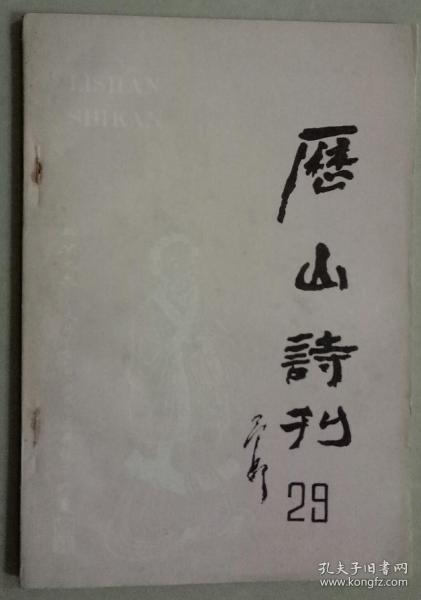 LISHAN
SHIKAN
歷山詩刊
29
孔夫子旧书网
www.kongfz.com